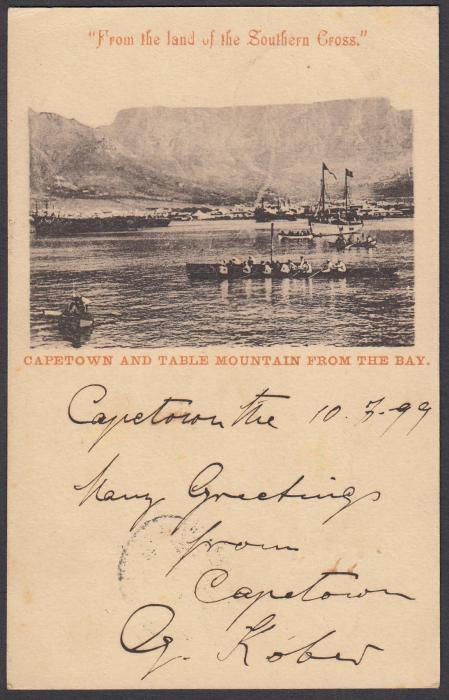 "From the land of the Southern Cross."
CAPETOWN AND TABLE MOUNTAIN FROM THE BAY.
Capetown the 10.7.99
Many Greetings
from
Capetown
Kober